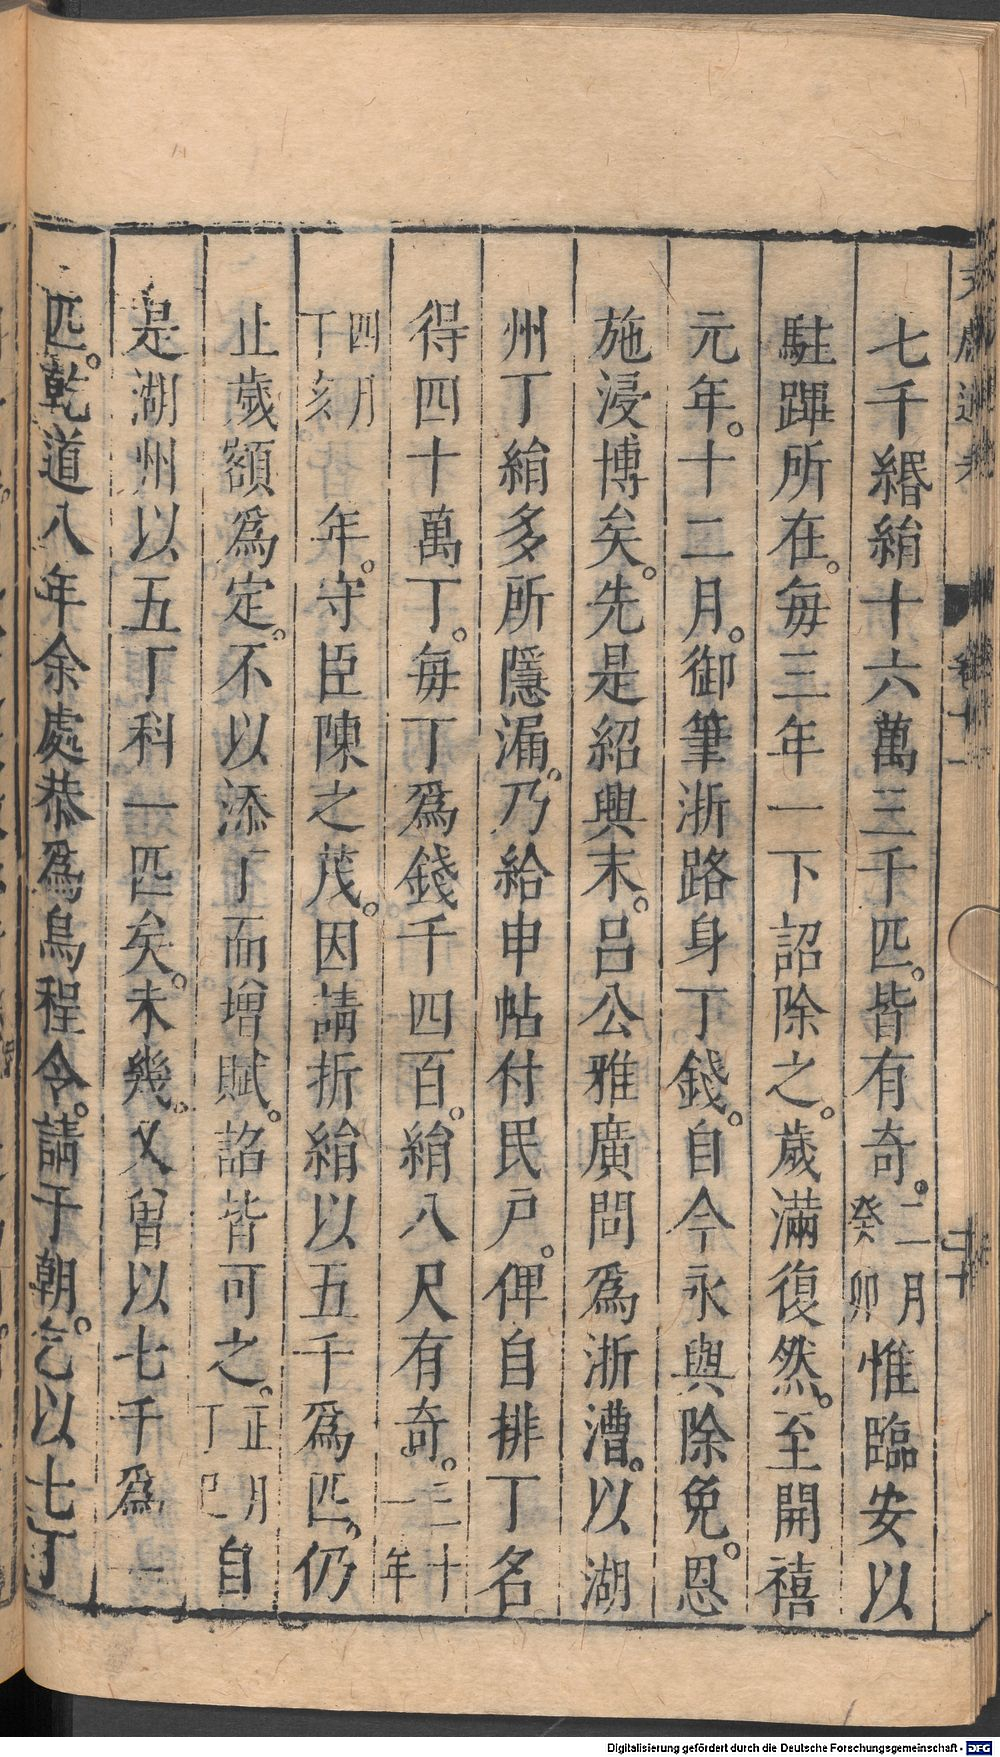 七千緡絹十六萬三千匹。皆有奇。二月癸卯惟臨安以
駐蹕所在。每三年一下詔除之。歲滿復然。至開禧
元年。十二月。御筆浙路身丁錢。自今永與除免。恩
施浸博矣。先是紹興末。呂公雅廣問爲浙漕。以湖
州丁絹多所隱漏。乃給申帖付民戶。俾自排丁名
得四十萬丁。每丁爲錢千四百。絹八尺有奇。三十一年
四月丁亥年。守臣陳之茂。因請折絹以五千爲匹。仍
止歲額爲定。不以添丁而增賦。詔皆可之。正月丁巳自
是湖州以五丁科一匹矣。未幾。又曾以七千爲一
匹。乾道八年余處恭爲烏程令。請于朝。乞以七丁
卷十一
Digitalisierung gefördert durch die Deutsche Forschungsgemeinschaft - DFG